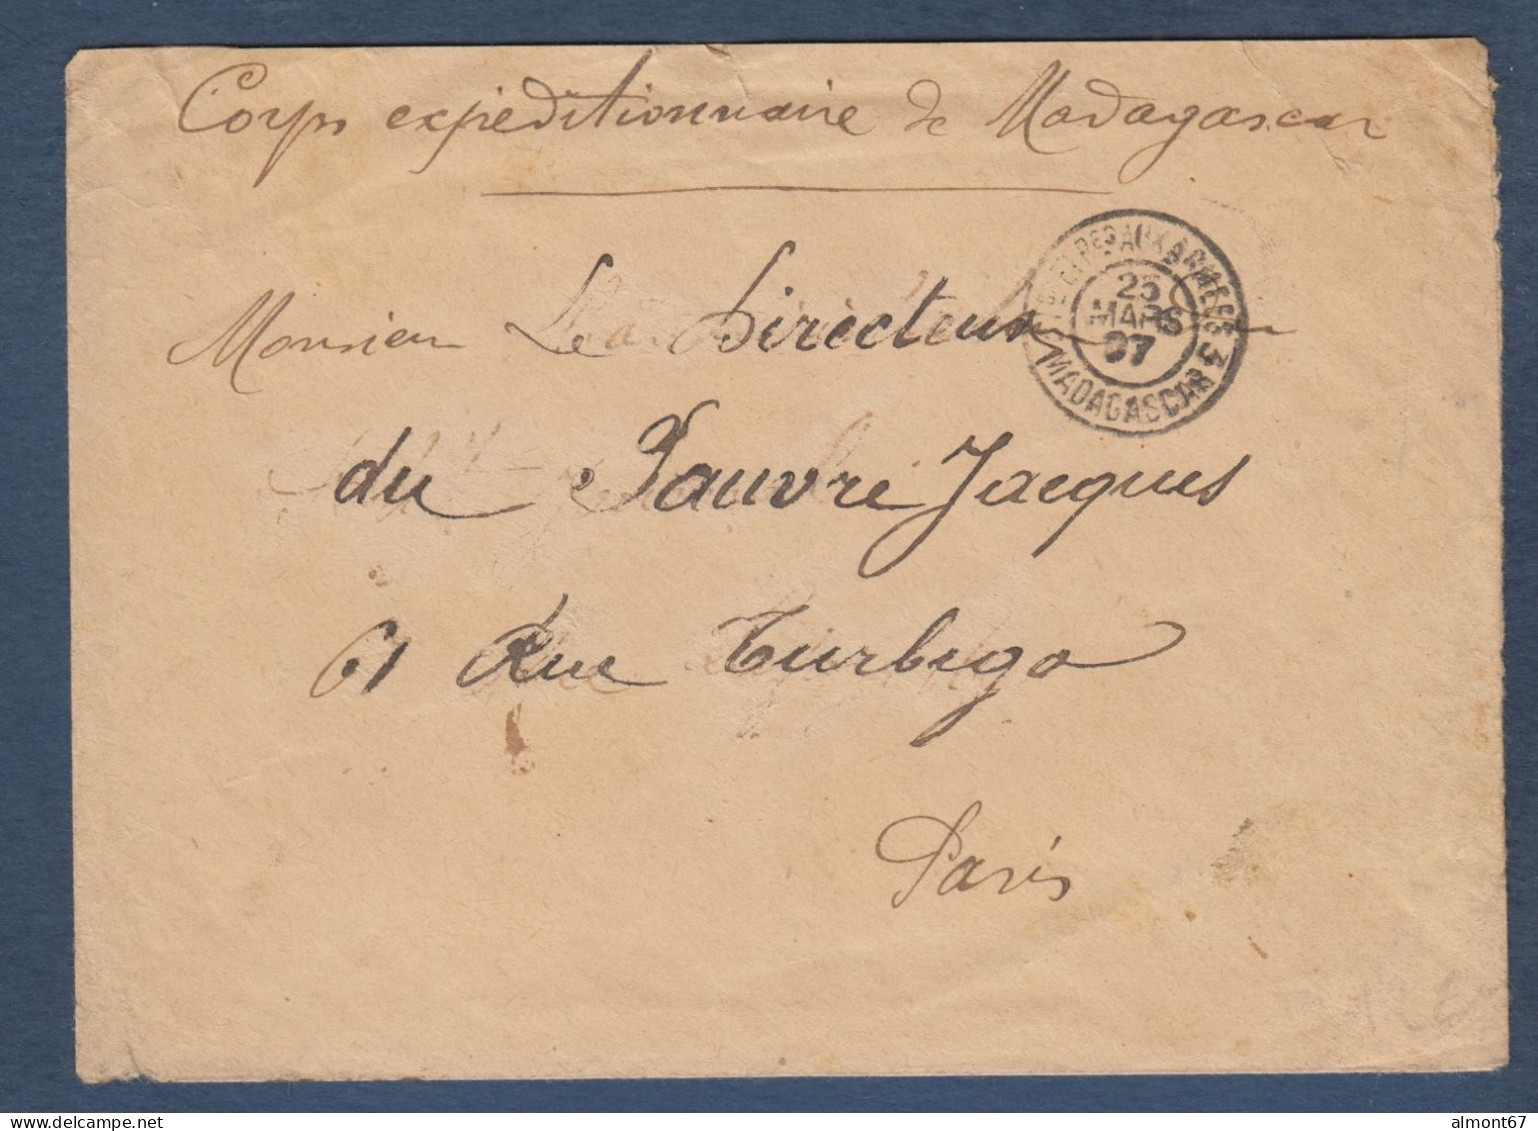 Corps expéditionnaire de Madagascar
TOR ET PES AUX ARMEES 3
25
MARS
97
MADAGASCAR
Monsieur Le Directeur
du Pauvre Jacques
61 Rue Turbigo
Paris
almont67